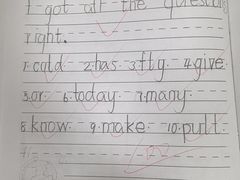 I got all the question
right.
1. cold 2. has 3. fly 4. give
5. or 6. today 7. many
8. know 9. make 10. pull